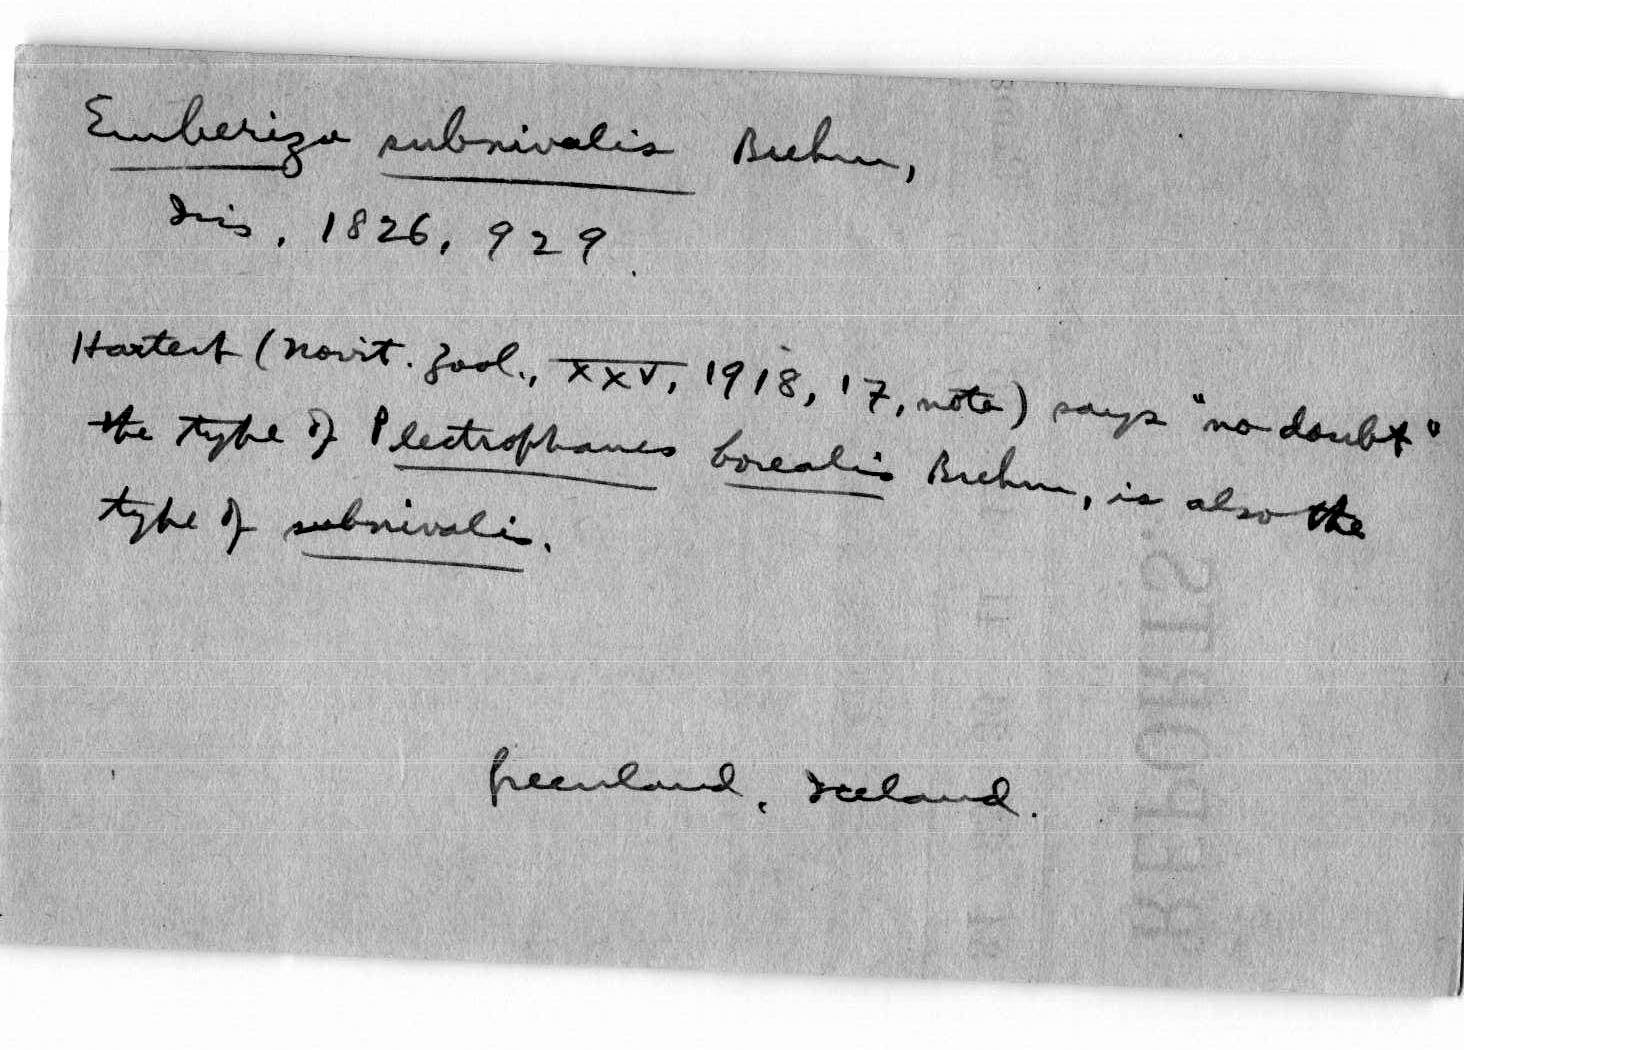 Emberiza subnivalis Brehm,
Isis, 1826, 929.
Hartert (Novit. Zool., XXV, 1918, 17, note) says "no doubt"
the type of Plectrophanes borealis Brehm, is also the
type of subnivalis.
Greenland, Iceland.
REPORTS.